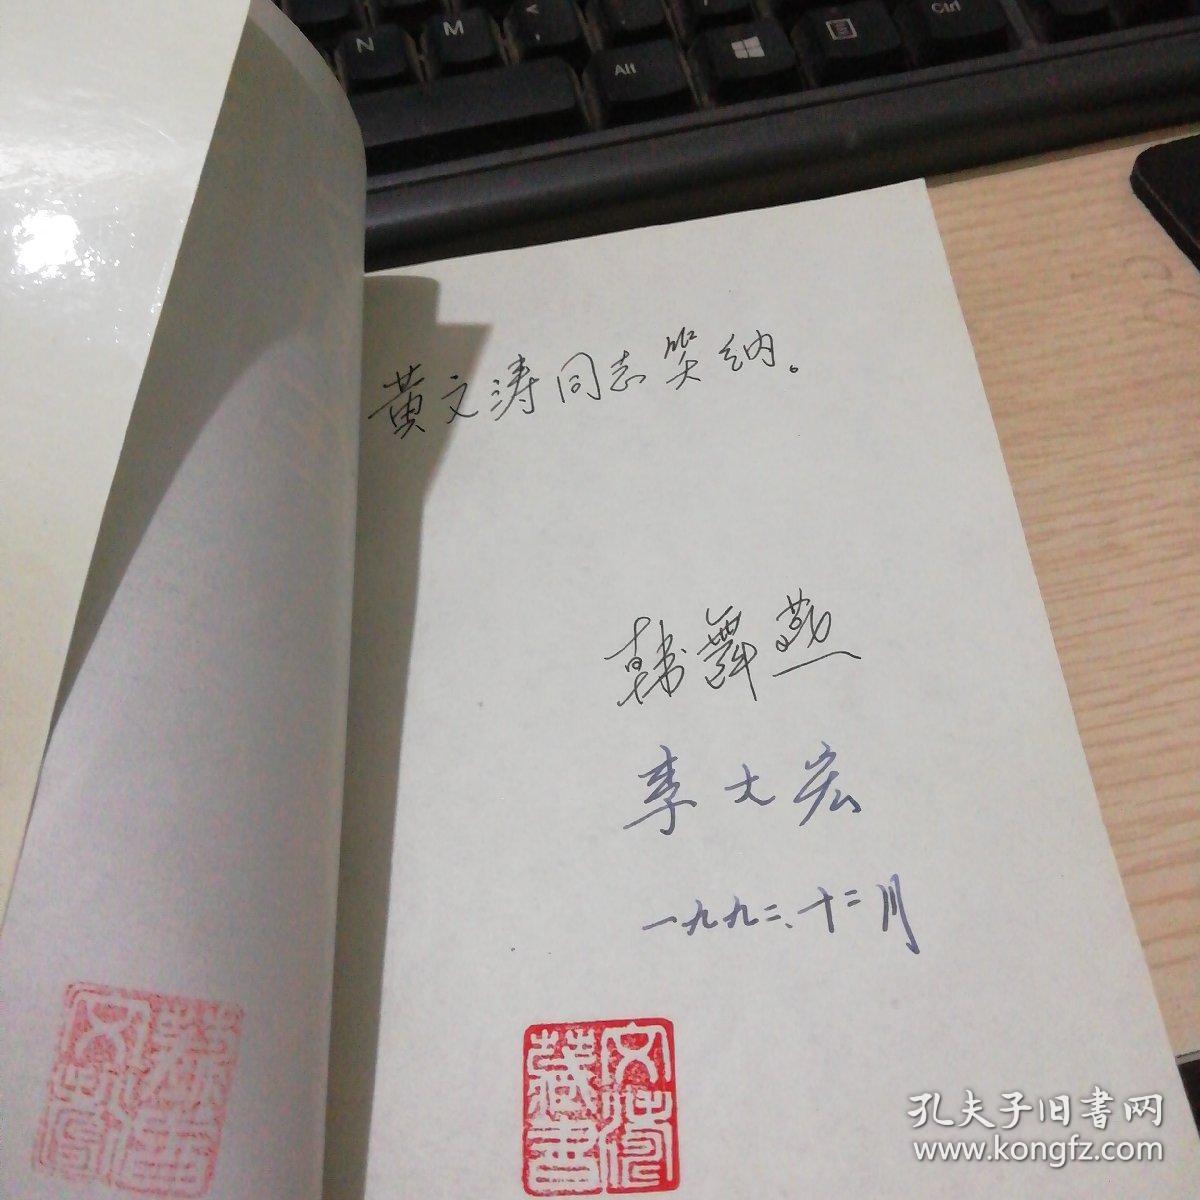 N
M
Alt
Ctrl
黄文涛同志笑纳。
韩舞燕
李大宏
一九九二、十二月
藏书
孔夫子旧书网
www.kongfz.com